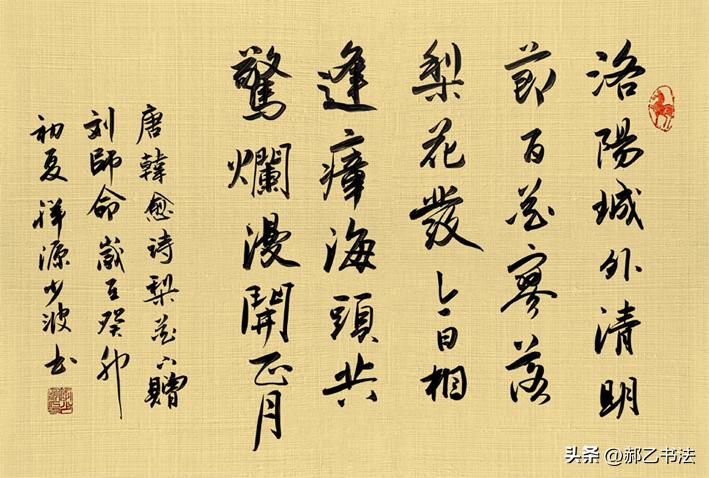 洛陽城外清明
節百花寥落
梨花發今日相
逢瘴海頭共
驚爛漫開正月
唐韓愈诗梨花下贈
刘師命歲在癸卯
初夏祥源少波书
头条 @郝乙书法